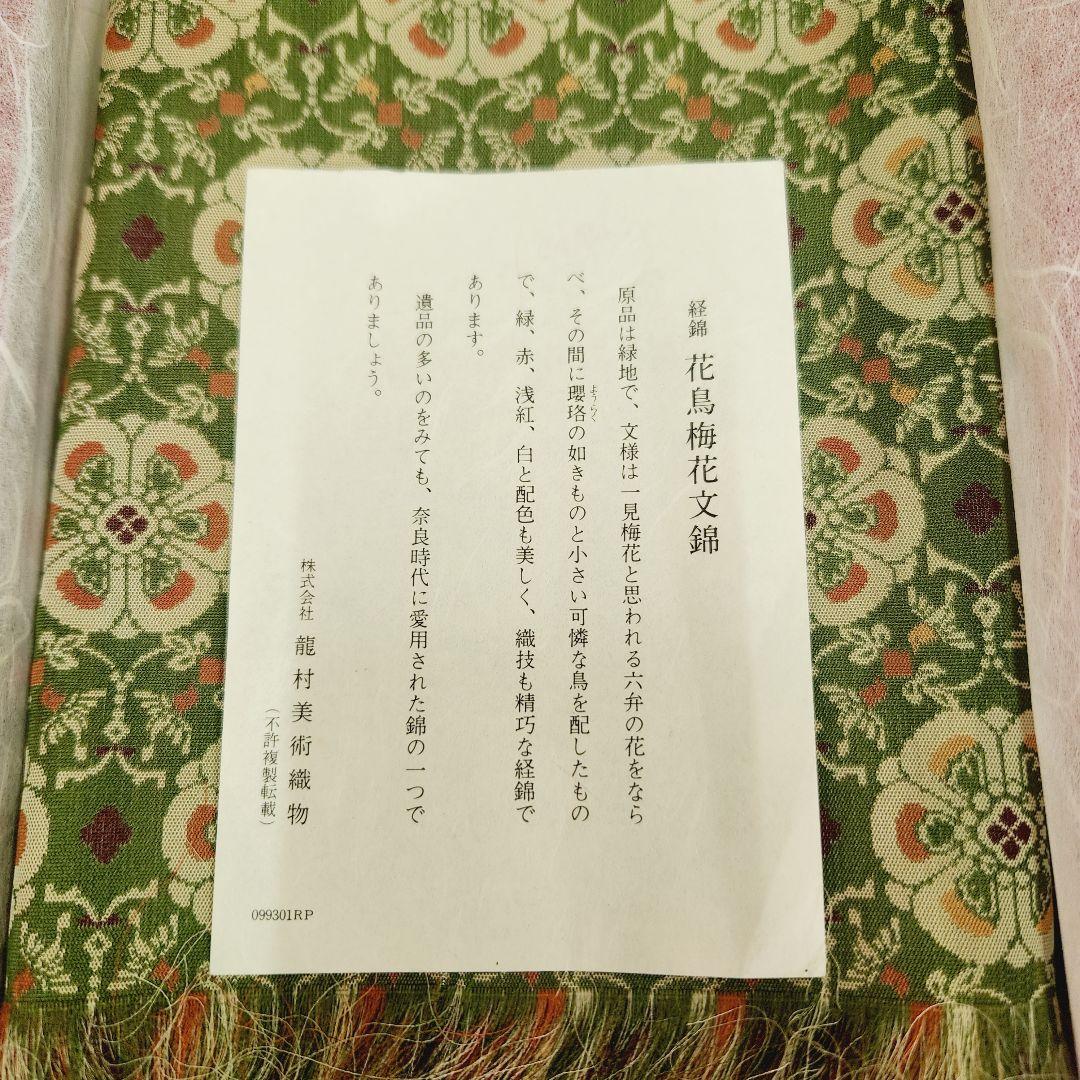 経錦 花鳥梅花文錦
原品は緑地で、文様は一見梅花と思われる六弁の花をなら
べ、その間に瓔珞の如きものと小さい可憐な鳥を配したもの
ようらく
で、緑、赤、浅紅、白と配色も美しく、織技も精巧な経錦で
あります。
遺品の多いのをみても、奈良時代に愛用された錦の一つで
ありましょう。
株式会社 龍村美術織物
(不許複製転載)
099301RP